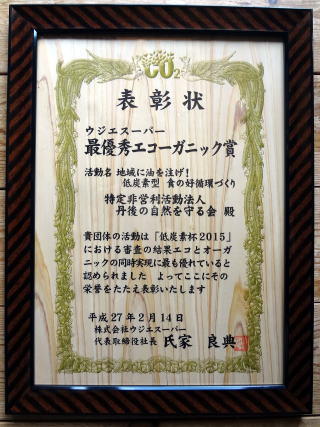 CO2
表彰状
ウジエスーパー
最優秀エコーガニック賞
活動名 地域に油を注げ！
低炭素型 食の好循環づくり
特定非営利活動法人
丹後の自然を守る会 殿
貴団体の活動は「低炭素杯2015」
における審査の結果エコとオーガ
ニックの同時実現に最も優れていると
認められました よってここにその
栄誉をたたえ表彰いたします
平成27年2月14日
株式会社ウジエスーパー
代表取締役社長 氏家 良典